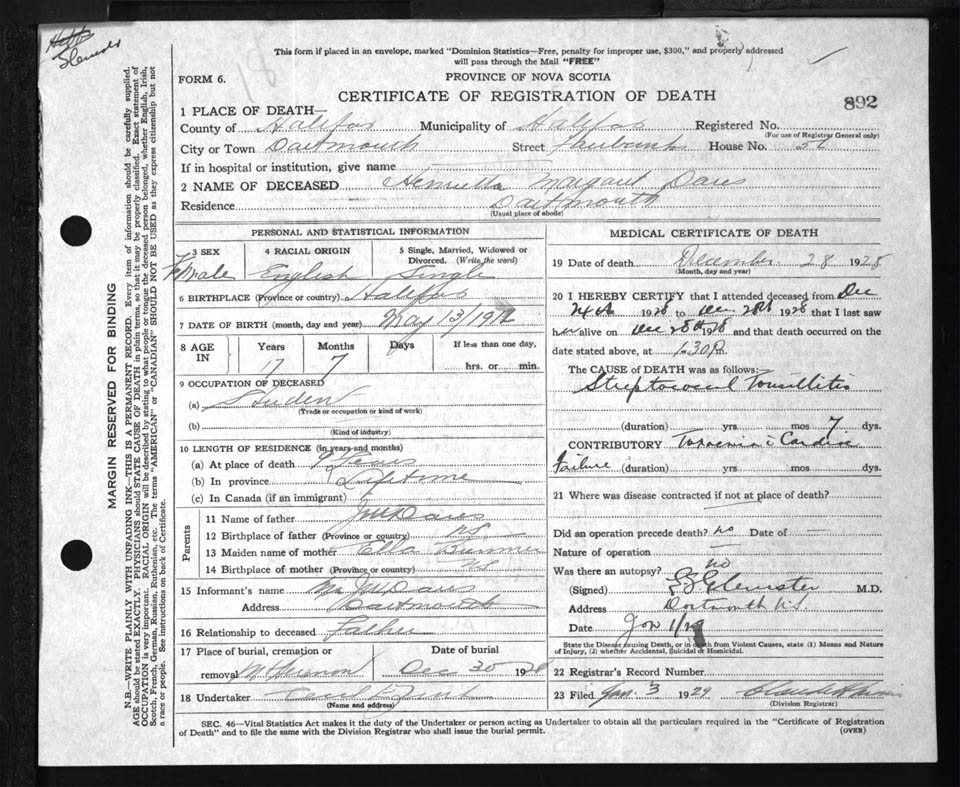 This form if placed in an envelope, marked "Dominion Statistics—Free, penalty for improper use, $300," and properly addressed
will pass through the Mail "FREE"
FORM 6.
PROVINCE OF NOVA SCOTIA
CERTIFICATE OF REGISTRATION OF DEATH
892
1 PLACE OF DEATH—
County of Halifax Municipality of Halifax Registered No.
(For use of Registrar General only)
City or Town Dartmouth Street Fairbanks House No. 56
If in hospital or institution, give name
2 NAME OF DECEASED Henrietta Margaret Daws
Residence Dartmouth
(Usual place of abode)
PERSONAL AND STATISTICAL INFORMATION
3 SEX 4 RACIAL ORIGIN 5 Single, Married, Widowed or
Divorced. (Write the word)
Female English Single
6 BIRTHPLACE (Province or country) Halifax
7 DATE OF BIRTH (month, day and year) May 13/19
8 AGE IN Years Months Days If less than one day,
17 7 hrs. or min.
9 OCCUPATION OF DECEASED
(a) Student
(Trade or occupation or kind of work)
(b)
(Kind of industry)
10 LENGTH OF RESIDENCE (in years and months)
(a) At place of death 9 Years
(b) In province Lifetime
(c) In Canada (if an immigrant)
Parents
11 Name of father
12 Birthplace of father (Province or country) NS
13 Maiden name of mother Ella
14 Birthplace of mother (Province or country) NS
15 Informant's name Mr
Address Dartmouth
16 Relationship to deceased Father
17 Place of burial, cremation or Date of burial
removal Mt Hermon Dec 30 1928
18 Undertaker
(Name and address)
MEDICAL CERTIFICATE OF DEATH
19 Date of death December 28 1928
(Month, day and year)
20 I HEREBY CERTIFY that I attended deceased from Dec
24th 1928 to Dec 28th 1928 that I last saw
her alive on Dec 28th 1928 and that death occurred on the
date stated above, at 1.30 P.m.
The CAUSE of DEATH was as follows:
Streptococcal Tonsillitis
(duration) yrs mos 7 dys.
CONTRIBUTORY Toxaemia & Cardiac
Failure (duration) yrs. mos. dys.
21 Where was disease contracted if not at place of death?
Did an operation precede death? no Date of
Nature of operation
Was there an autopsy? no
(Signed) Glenister M.D.
Address Dartmouth N.S.
Date Jan 1/29
State the Disease causing Death, or in death from Violent Causes, state (1) Means and Nature
of Injury, (2) whether Accidental, Suicidal or Homicidal.
22 Registrar's Record Number
23 Filed Jan. 3 1929
(Division Registrar)
SEC. 46—Vital Statistics Act makes it the duty of the Undertaker or person acting as Undertaker to obtain all the particulars required in the "Certificate of Registration
of Death" and to file the same with the Division Registrar who shall issue the burial permit.
(OVER)
MARGIN RESERVED FOR BINDING
N.B.—WRITE PLAINLY WITH UNFADING INK—THIS IS A PERMANENT RECORD. Every item of information should be carefully supplied.
AGE should be stated EXACTLY. PHYSICIANS should STATE CAUSE OF DEATH in plain terms, so that it may be properly classified. Exact statement of
OCCUPATION is very important. RACIAL ORIGIN will be described by stating to what people or tongue the deceased person belonged, whether English, Irish,
Scotch, French, German, Russian, Ruthenian, etc. The terms "AMERICAN" or "CANADIAN" SHOULD NOT BE USED as they express citizenship but not
a race or people. See instructions on back of Certificate.